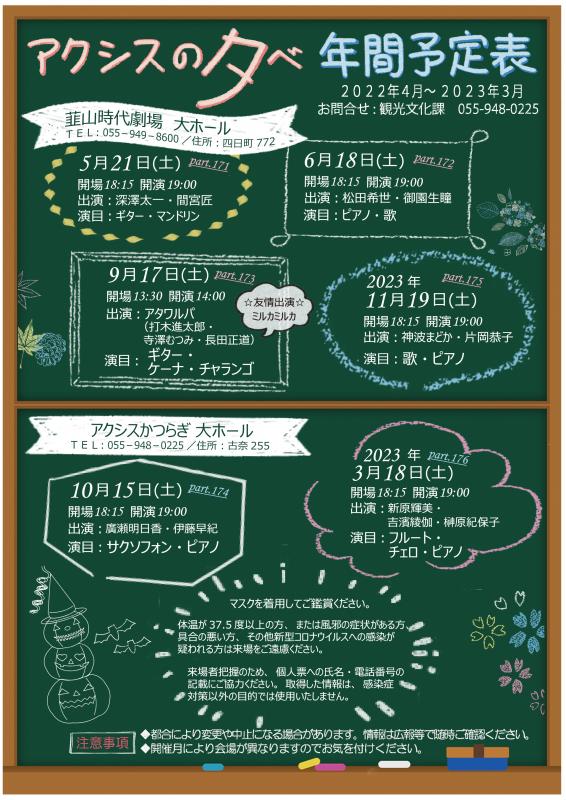 アクシスの夕べ 年間予定表
2022年4月～2023年3月
お問合せ：観光文化課 055-948-0225
韮山時代劇場 大ホール
TEL：055−949−8600／住所：四日町 772
5月21日(土) part.171
開場18:15 開演19:00
出演：深澤太一・間宮匠
演目：ギター・マンドリン
6月18日(土) part.172
開場18:15 開演19:00
出演：松田希世・御園生瞳
演目：ピアノ・歌
9月17日(土) part.173
開場13:30 開演14:00
出演：アタワルパ
（打木進太郎・
寺澤むつみ・長田正道）
演目：ギター・
ケーナ・チャランゴ
☆友情出演☆
ミルカミルカ
2023 年 part.175
11月19日(土)
開場18:15 開演19:00
出演：神波まどか・片岡恭子
演目：歌・ピアノ
アクシスかつらぎ 大ホール
TEL：055−948−0225／住所：古奈 255
10月15日(土) part.174
開場18:15 開演19:00
出演：廣瀬明日香・伊藤早紀
演目：サクソフォン・ピアノ
2023 年 part.176
3月18日(土)
開場18:15 開演19:00
出演：新原輝美・
吉濱綾伽・榊原紀保子
演目：フルート・
チェロ・ピアノ
マスクを着用してご鑑賞ください。
体温が 37.5 度以上の方、または風邪の症状がある方、
具合の悪い方、その他新型コロナウイルスへの感染が
疑われる方は来場をご遠慮ください。
来場者把握のため、個人票への氏名・電話番号の
記載にご協力ください。取得した情報は、感染症
対策以外の目的では使用いたしません。
注意事項
◆都合により変更や中止になる場合があります。情報は広報等で随時ご確認ください。
◆開催月により会場が異なりますのでお気を付けください。